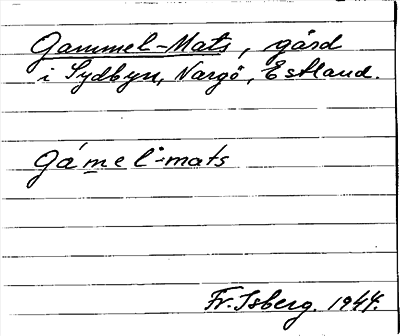 Gammel-Mats, gård
i Sydbyn, Nargö, Estland.
gámel-mats
Fr. Isberg. 1944.